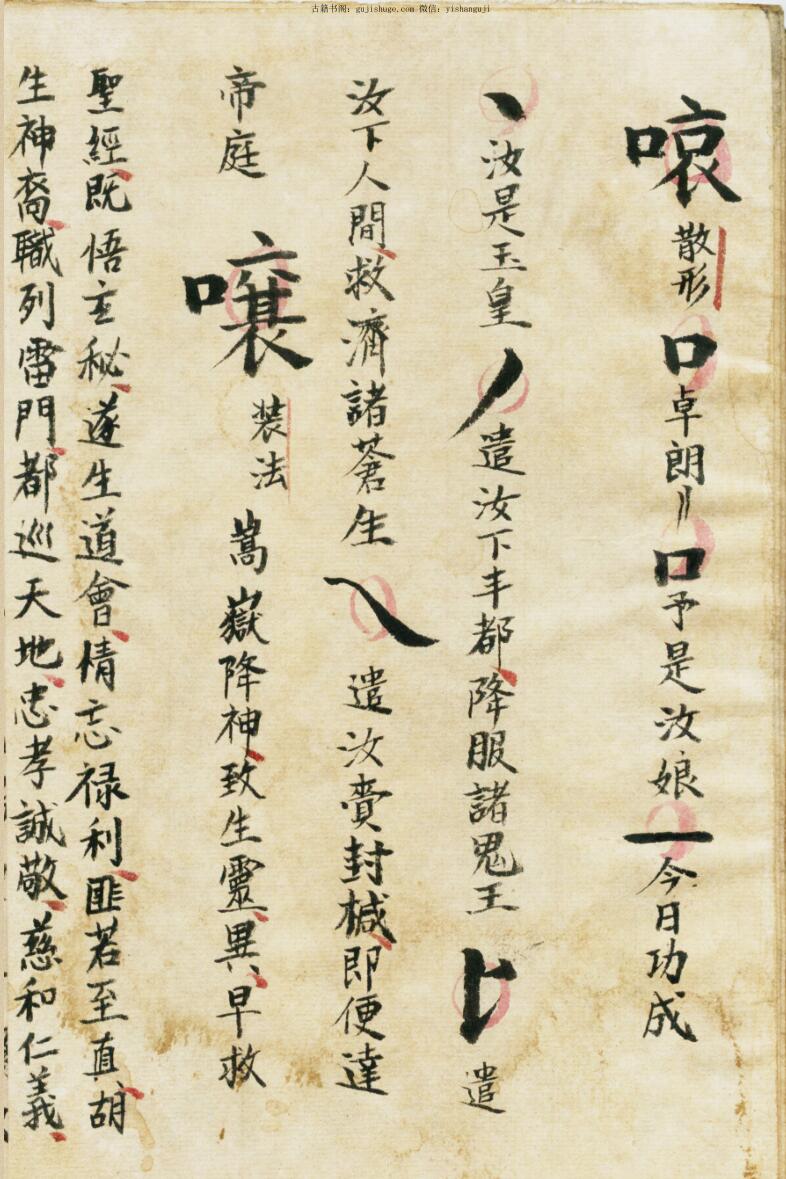 古籍书阁：gujishuge.com 微信：yishanguji
散形 口卓朗〃口予是汝娘一今日功成
丶汝是玉皇丿遣汝下丰都降服諸鬼王 遣
汝下人間救濟諸蒼生乀遣汝賫封椷即便達
帝庭 裝法 嵩嶽降神致生靈異早救
聖經既悟玄秘遂生道會情忘禄利匪若至真胡
生神裔職列雷門都巡天地忠孝誠敬慈和仁義